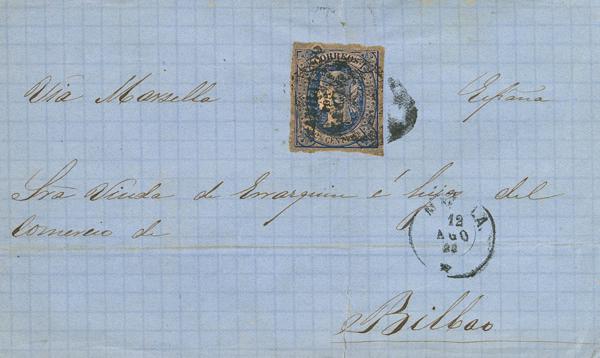 CORREOS
Via Marsella España
Sra Viuda de Errazquin é hijos del
Comercio de
12
AGO
Bilbao